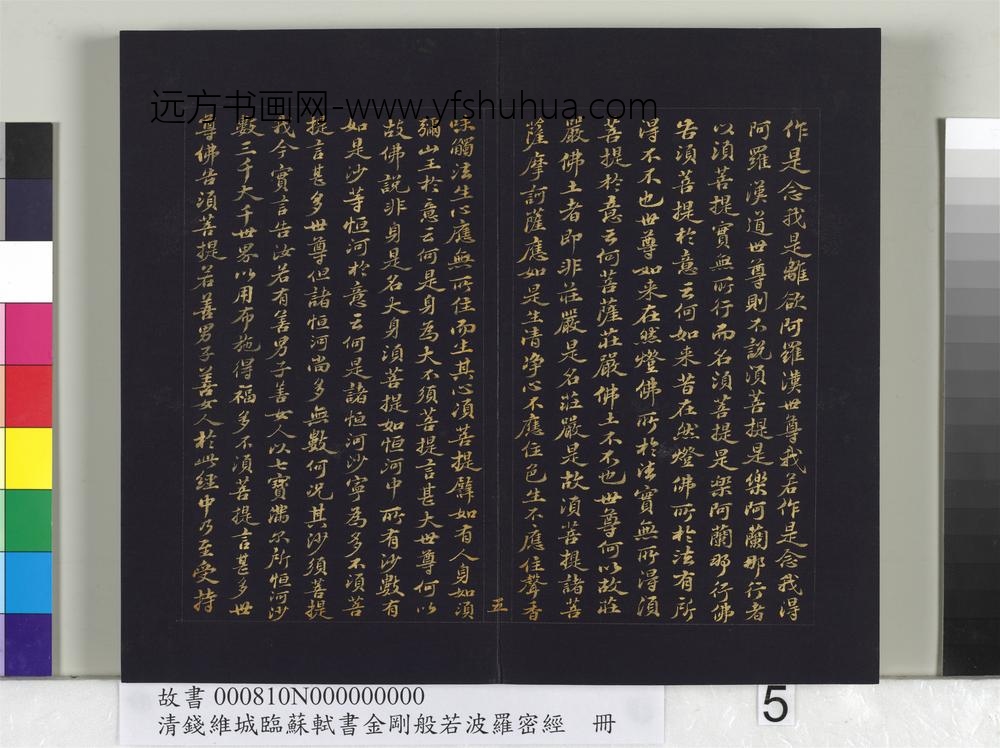 远方书画网-www.yfshuhua.com
作是念我是離欲阿羅漢世尊我若作是念我得
阿羅漢道世尊則不說須菩提是樂阿蘭那行者
以須菩提實無所行而名須菩提是樂阿蘭那行佛
告須菩提於意云何如来昔在然燈佛所於法有所
得不不也世尊如来在然燈佛所於法實無所得須
菩提於意云何菩薩莊嚴佛土不不也世尊何以故莊
嚴佛土者即非莊嚴是名莊嚴是故須菩提諸菩
薩摩訶薩應如是生清淨心不應住色生不應住聲香
五
味觸法生心應無所住而生其心須菩提譬如有人身如須
彌山王於意云何是身為大不須菩提言甚大世尊何以
故佛說非身是名大身須菩提如恒河中所有沙數有
如是沙等恒河於意云何是諸恒河沙寧為多不須菩
提言甚多世尊但諸恒河尚多無數何况其沙須菩提
我今實言告汝若有善男子善女人以七寶滿尔所恒河沙
數三千大千世界以用布施得福多不須菩提言甚多世
尊佛告須菩提若善男子善女人於此經中乃至受持
故書 000810N000000000
清錢維城臨蘇軾書金剛般若波羅密經 冊
5